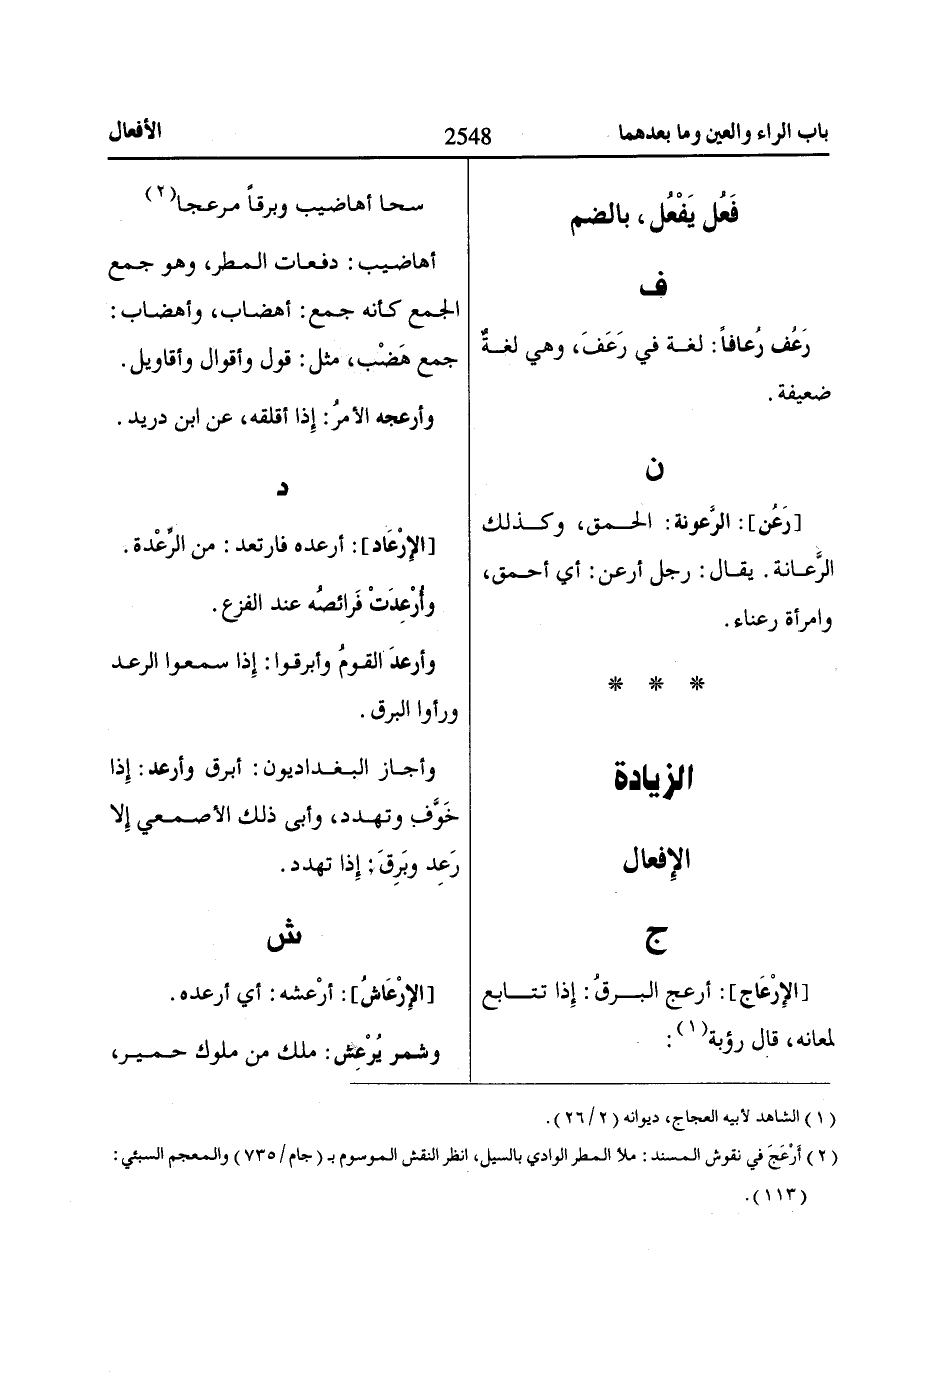 باب الراء والعين وما بعدهما 2548 الأفعال
فَعُل يَفْعُل، بالضم
ف
رَعُف رُعافاً: لغـة في رَعَفَ، وهي لغـةٌ
ضعيفة.
ن
[رَعُن]: الرُّعونة: الحـمق، وكـذلك
الرَّعـانة. يقـال: رجـل أرعن: أي أحـمق،
وامرأة رعناء.
* * *
الزيادة
الإفعال
ج
[الإرْعَاج]: أرعج البـرقُ: إذا تتـابع
لمعانه، قال رؤبة(١):
سـحا أهاضيب وبرقاً مـرعجـا(٢)
أهاضيب: دفعات المطر، وهو جـمع
الجمع كـأنه جمع: أهضـاب، وأهضـاب:
جمع هَضْب، مثل: قول وأقوال وأقاويل.
وأرعجه الأمرُ: إذا أقلقه، عن ابن دريد.
د
[الإرْعَاد]: أرعده فارتعد: من الرِّعْدة.
وأُرْعِدَتْ فَرائصُه عند الفزع.
وأرعدَ القومُ وأبرقوا: إذا سمعوا الرعد
ورأوا البرق.
وأجـاز البـغـداديون: أبرق وأرعد: إذا
خَوَّف وتهـدد، وأبى ذلك الأصـمعي إلا
رَعِد وبَرِقَ: إذا تهدد.
ش
[الإرْعَاشُ]: أرْعشه: أي أرعده.
وشمر يُرْعِش: ملك من ملوك حـميـر،
(١) الشاهد لأبيه العجاج، ديوانه (٢/ ٢٦).
(٢) أرْعَجَ في نقوش المسند: ملأ المطر الوادي بالسيل، انظر النقش الموسوم بـ (جام/ ٧٣٥) والمعجم السبئي:
(١١٣).